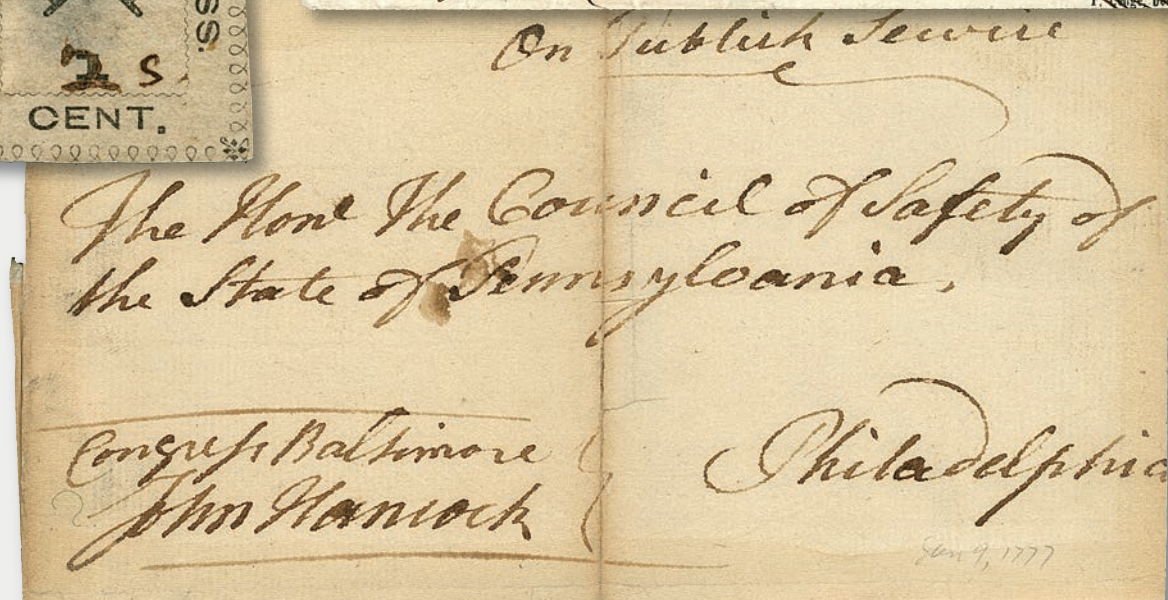 SS.
1 s
CENT.
On Publick Service
The Honl. The Council of Safety of
the State of Pennsylvania.
Congress Baltimore
John Hancock
Philadelphia
Jan 9, 1777